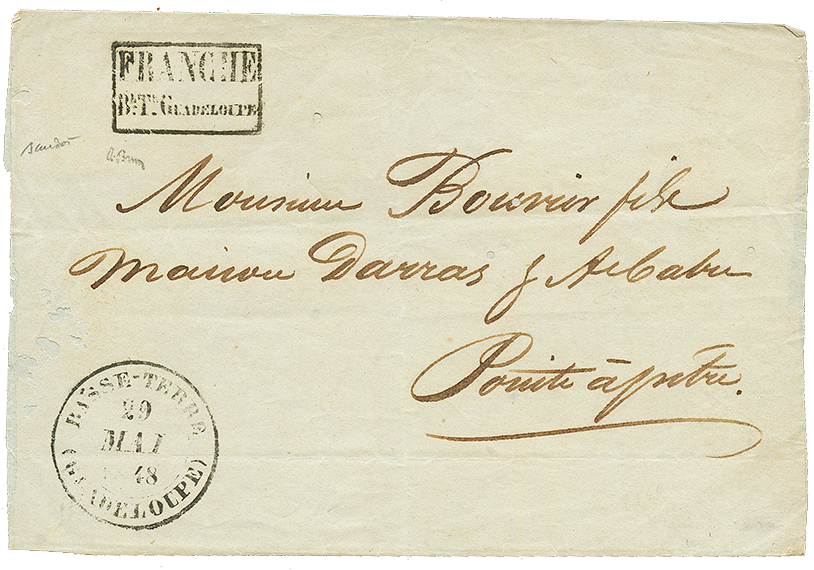 FRANCHE
Bse Tre GUADELOUPE
Monsieur Bouvier fils
Maison Darras &
Pointe à pitre.
BASSE-TERRE
29
MAI
48
(GUADELOUPE)